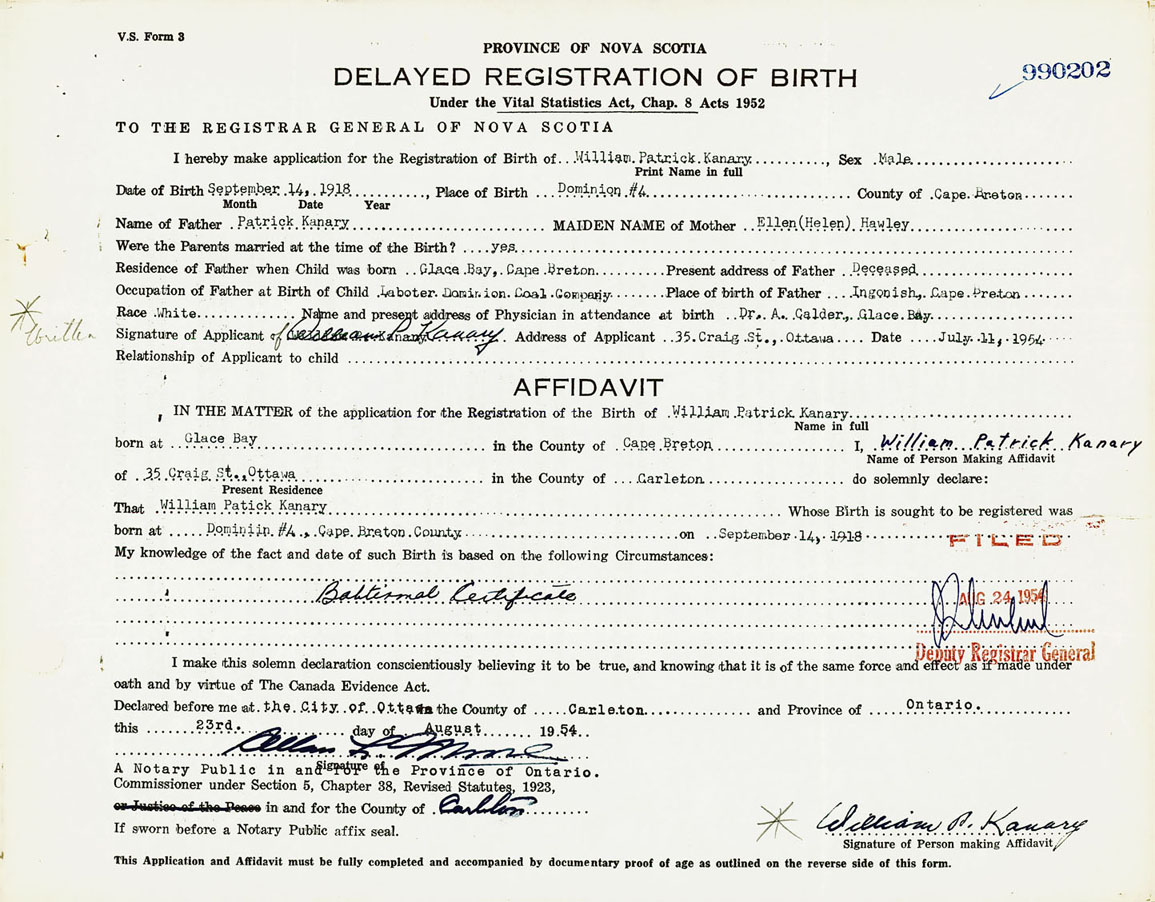 V.S. Form 3
PROVINCE OF NOVA SCOTIA
DELAYED REGISTRATION OF BIRTH
990202
Under the Vital Statistics Act, Chap. 8 Acts 1952
TO THE REGISTRAR GENERAL OF NOVA SCOTIA
I hereby make application for the Registration of Birth of William Patrick Kanary, Sex Male
Print Name in full
Date of Birth September 14, 1918, Place of Birth Dominion #4 County of Cape Breton
Month Date Year
Name of Father Patrick Kanary MAIDEN NAME of Mother Ellen(Helen) Hawley
Were the Parents married at the time of the Birth? yes
Residence of Father when Child was born Glace Bay, Cape Breton Present address of Father Deceased
Occupation of Father at Birth of Child Laboter Dominion Coal Company Place of birth of Father Ingonish, Cape Breton
Race White Name and present address of Physician in attendance at birth Dr. A. Calder, Glace Bay
written
Signature of Applicant of William P. Kanary Address of Applicant 35 Craig St., Ottawa Date July 11, 1954
Relationship of Applicant to child
AFFIDAVIT
IN THE MATTER of the application for the Registration of the Birth of William Patrick Kanary
Name in full
born at Glace Bay in the County of Cape Breton I, William Patrick Kanary
Name of Person Making Affidavit
of 35 Craig St., Ottawa in the County of Carleton do solemnly declare:
Present Residence
That William Patick Kanary Whose Birth is sought to be registered was
born at Dominiin #4, Cape Breton County on September 14, 1918
FILED
My knowledge of the fact and date of such Birth is based on the following Circumstances:
Babtismal Certificate
AUG 24 1954
Deputy Registrar General
I make this solemn declaration conscientiously believing it to be true, and knowing that it is of the same force and effect as if made under
oath and by virtue of The Canada Evidence Act.
Declared before me at the City of Ottawa the County of Carleton and Province of Ontario.
this 23rd. day of August 1954
Allan Moore
Signature of
A Notary Public in and for the Province of Ontario.
Commissioner under Section 5, Chapter 38, Revised Statutes, 1923,
or Justice of the Peace in and for the County of Carleton
If sworn before a Notary Public affix seal.
William P. Kanary
Signature of Person making Affidavit
This Application and Affidavit must be fully completed and accompanied by documentary proof of age as outlined on the reverse side of this form.